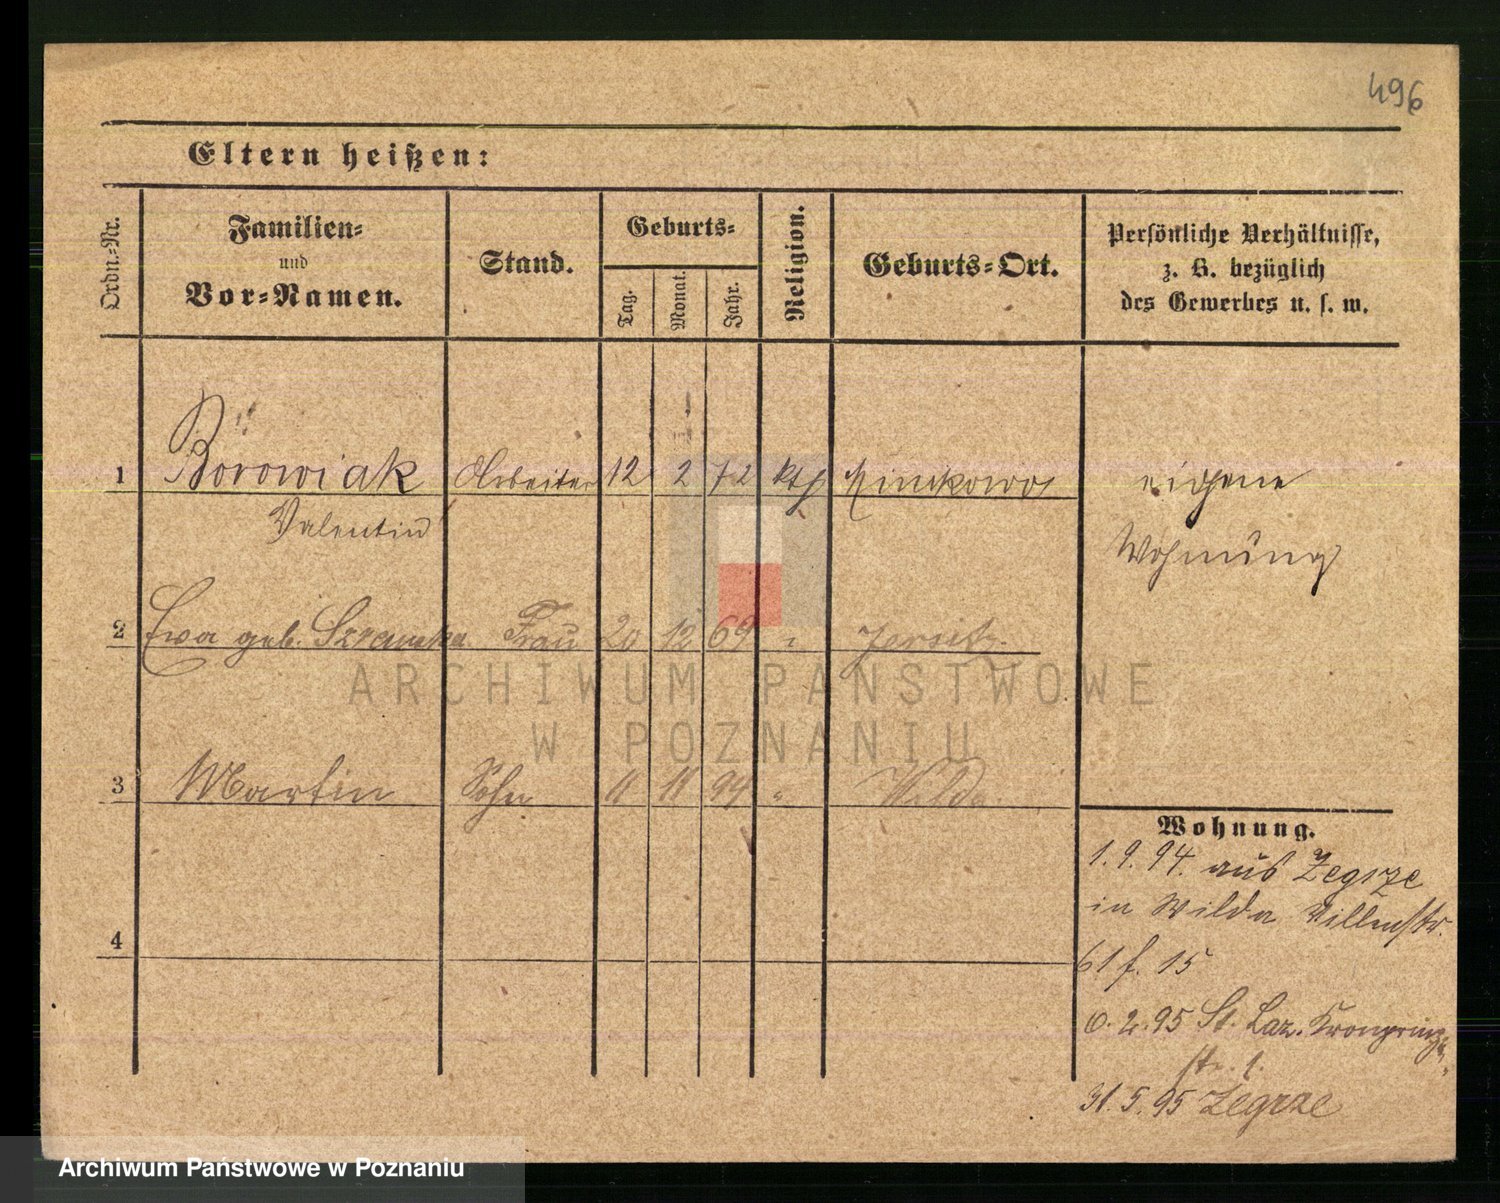 496
Eltern heißen:
Ordn.-Nr.
Familien-
und
Vor-Namen.
Stand.
Geburts-
Tag.
Monat.
Jahr.
Religion.
Geburts-Ort.
Persönliche Verhältnisse,
z. B. bezüglich
des Gewerbes u. s. w.
1 Borowiak Arbeiter 12 2 72 kth
Valentin
eigene
Wohnung
2 Ewa geb. Frau 20 12 69 " Jersitz.
3 Martin Sohn 11 11 94 " Wilda.
4
Wohnung.
1.9.94. aus Zegrze
in Wilda Villenstr.
61 f. 15
6.2.95 St. Laz. Kronprinz-
str. 1.
31.5.95 Zegrze
ARCHIWUM PAŃSTWOWE
W POZNANIU
Archiwum Państwowe w Poznaniu